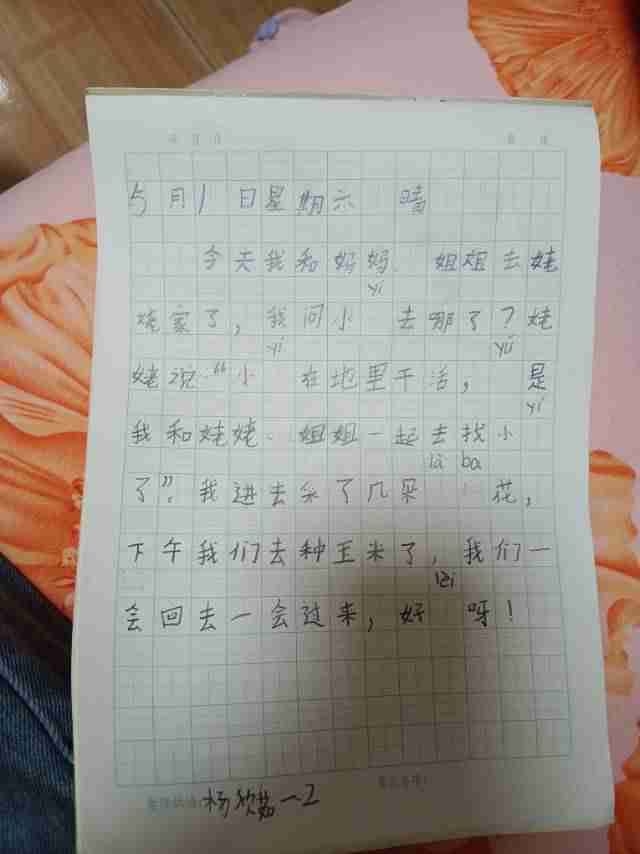 5月1日星期六 晴
今天我和妈妈、姐姐去姥
yi
姥家了，我问小 去哪了？姥
yi yú
姥说：“小 在地里干活， 是
yi
我和姥姥、姐姐一起去找小
lǎ ba
了”。我进去采了几朵 花，
下午我们去种玉米了，我们一
lèi
会回去一会过来，好 呀！
杨欣茹一2